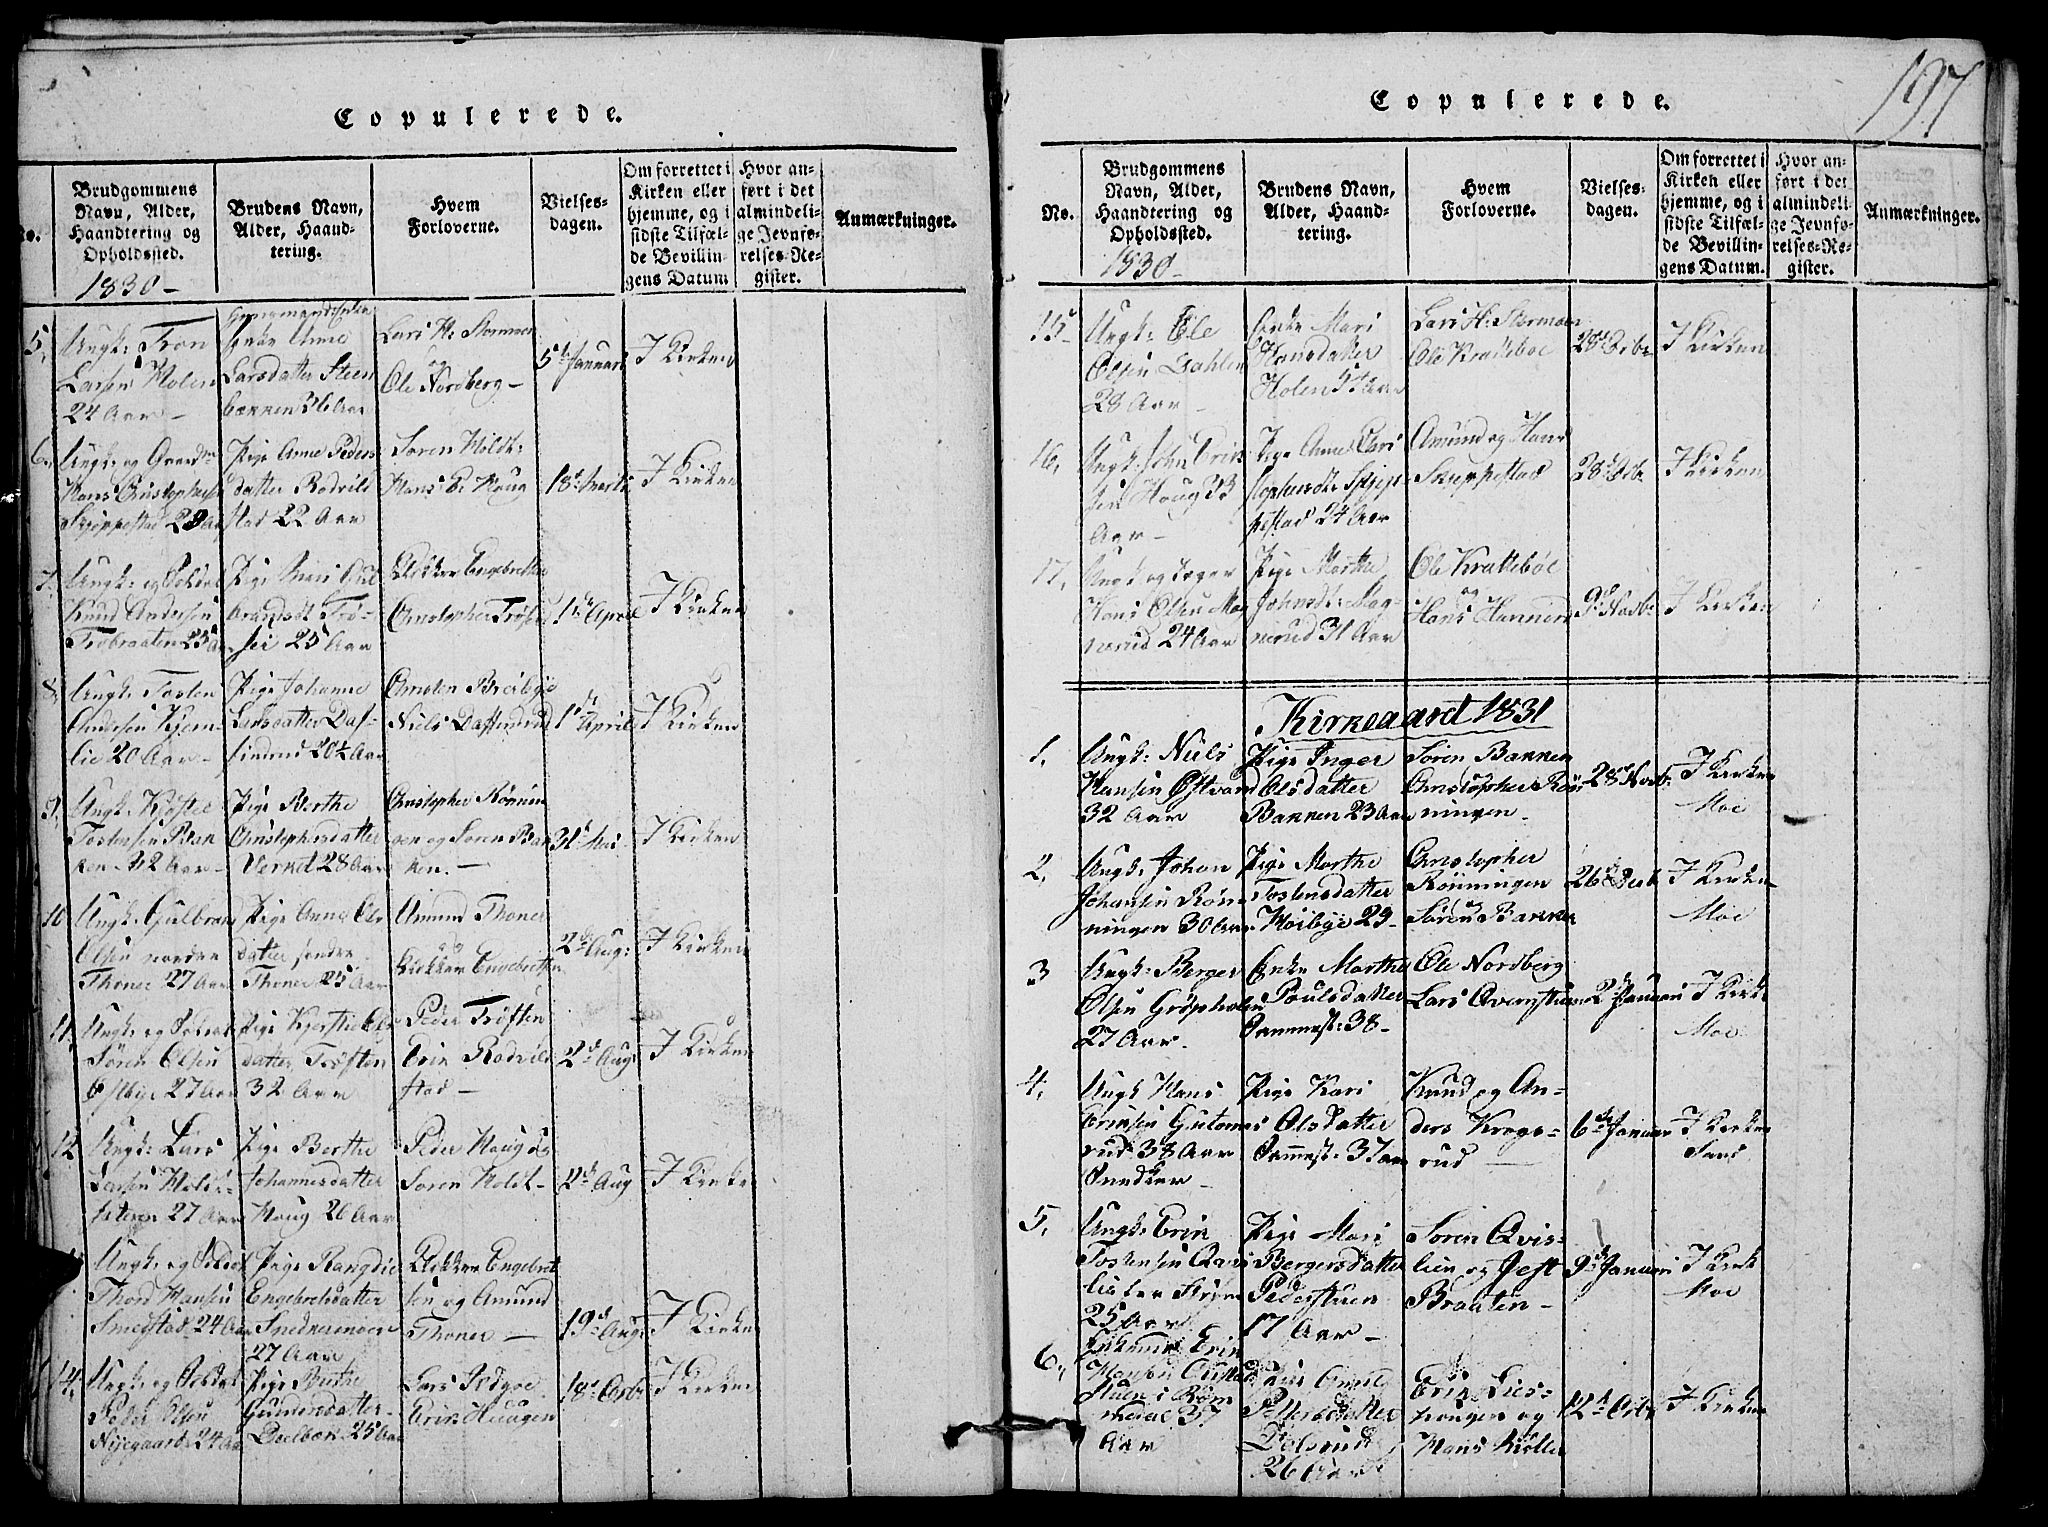 197
Copulerede.
No.
Brudgommens
Navn, Alder,
Haandtering og
Opholdssted.
1830 –
Brudens Navn,
Alder, Haand-
tering.
Hvem
Forloverne.
Vielses-
dagen.
Om forrettet i
Kirken eller
hjemme, og i
sidste Tilfæl-
de Bevillin-
gens Datum
Hvor an-
ført i det
almindeli-
ge Jevnfø-
relses-Re-
gister.
Anmærkninger.
5.
Ungk: Tron
Larsen Holen
24 Aar –
Anne
Larsdatter Steen
bakken Aar
Lars H:
og
Ole Nordberg –
5te Januari
I Kirken
6.
Ungk: og
Hans Christophersen
Skjeppestad 29 Aar
Pige Anne Peders
datter Rodvild
stad 22 Aar
Søren Holdt:
Hans Haug
18de Marti
I Kirken
7.
Ungk: og
Knud Andersen
Trobraaten 25 Aar
Pige Mari Gul
brandsdt Trø-
sei 25 Aar
Engebretsen
Christopher
1ste April
I Kirken
8.
Ungk: Tosten
Andersen Kjem-
lie 20 Aar –
Pige Johanne
Larsdatter Daf-
finrud 20½ Aar
Amsten Breibye
Niels Daffinrud
1ste April
I Kirken
9.
Ungk:
Tostensen Bak
ken 32 Aar –
Pige Berthe
Christophersdatter
Verket 28 Aar
Christopher Rønnin
gen og Søren Bak
ken. –
31te Mai
I Kirken
10
Ungk: Gulbrand
Olsen nordre
Thoner 27 Aar
Pige Anne Ols
datter søndre
Thoner 25 Aar
Amund Thoner
og
Engebretsen
2de Aug:
I Kirken
11.
Ungk: og
Søren Olsen
Østbye 27 Aar
Pige Kjersti Ols
datter Trøften
32 Aar
Peder Trøften
Erik Rodvild
stad –
2de Aug:
I Kirken
12
Ungk: Lars
Larsen
27 Aar
Pige Berthe
Johannesdatter
Haug 26 Aar
Peder Haug og
Søren Holdt –
2de Aug
I Kirken
Ungk: og
Thord Hansen
Smedstad 24 Aar
Pige Rangdie
Engebretsdatter
Snedkermoen
27 Aar
Engebret
sen og Amund
Thoner –
19de Aug:
I Kirken
14.
Ungk: og
Peder Olsen
Nyegaard 24 Aar
Pige Berthe
Gundersdatter
25 Aar
Lars
Erik Haugen
18de Octbr
I Kirken
Copulerede.
No.
Brudgommens
Navn, Alder,
Haandtering og
Opholdssted.
1830 –
Brudens Navn,
Alder, Haand-
tering.
Hvem
Forloverne.
Vielses-
dagen.
Om forrettet i
Kirken eller
hjemme, og i
sidste Tilfæl-
de Bevillin-
gens Datum.
Hvor an-
ført i det
almindeli-
ge Jevnfø-
relses-Re-
gister.
Anmærkninger.
15
Ungk: Ole
Olsen Dahlen
28 Aar –
Enke Mari
Hansdatter
Holen 54 Aar
Lars H:
Ole Krattebøl
28de Octbr
I Kirken
16.
Ungk: John Erik
sen Haug 33
Aar –
Pige Anne Chri
stophersdt: Skjep
pestad 24 Aar
Amund og Hans
Skjeppestad
28de Octbr
I Kirken
17.
Ungk og Jæger
Hans Olsen Mag
nerud 24 Aar
Pige Marthe
Johnsdt: Mag
nerud 31 Aar
Ole Krattebøl
og
Hans Hannerud
9de Novbr
I Kirken
Kirkeaaret 1831
1.
Ungk: Niels
Hansen Østvand
32 Aar
Pige Inger
Olsdatter
Bakken 23 Aar
Søren Bakken
Christopher Røn
ningen –
28de Novb:
I Kirken
Moe
2.
Ungk: Johan
Johansen Røn
ningen 30 Aar
Pige Marthe
Tostensdatter
Høibye 29 –
Christopher
Rønningen
og
Søren Bakken
26de Decb
I Kirken
Moe
3
Ungk: Berger
Olsen Grøpholen
27 Aar.
Enke Marthe
Poulsdatter
38 –
Ole Nordberg
Lars Qvernstuen
2de Januari
I Kirk:
Moe
4.
Ungk Hans
Eriksen Gutorms
rud 38 Aar
Snedker –
Pige Kari
Olsdatter
37 Aar
Knud og An-
ders Krogs-
rud –
6te Januar
I Kirken
5.
Ungk: Erik
Tostensen Qvis
lien
25 Aar
Pige Mari
Bergersdatter
Pederstuen
17 Aar –
Søren Qvis-
lien og Jest
Braaten –
9de Januari
I Kirk
Moe
6.
Enkemand Erik
Hansen
Stuen i Rom
37
Aar
Pige
Pettersdatter
26 Aar
Erik Lies-
haugen og
Hans
12te Octbr
I Kirken